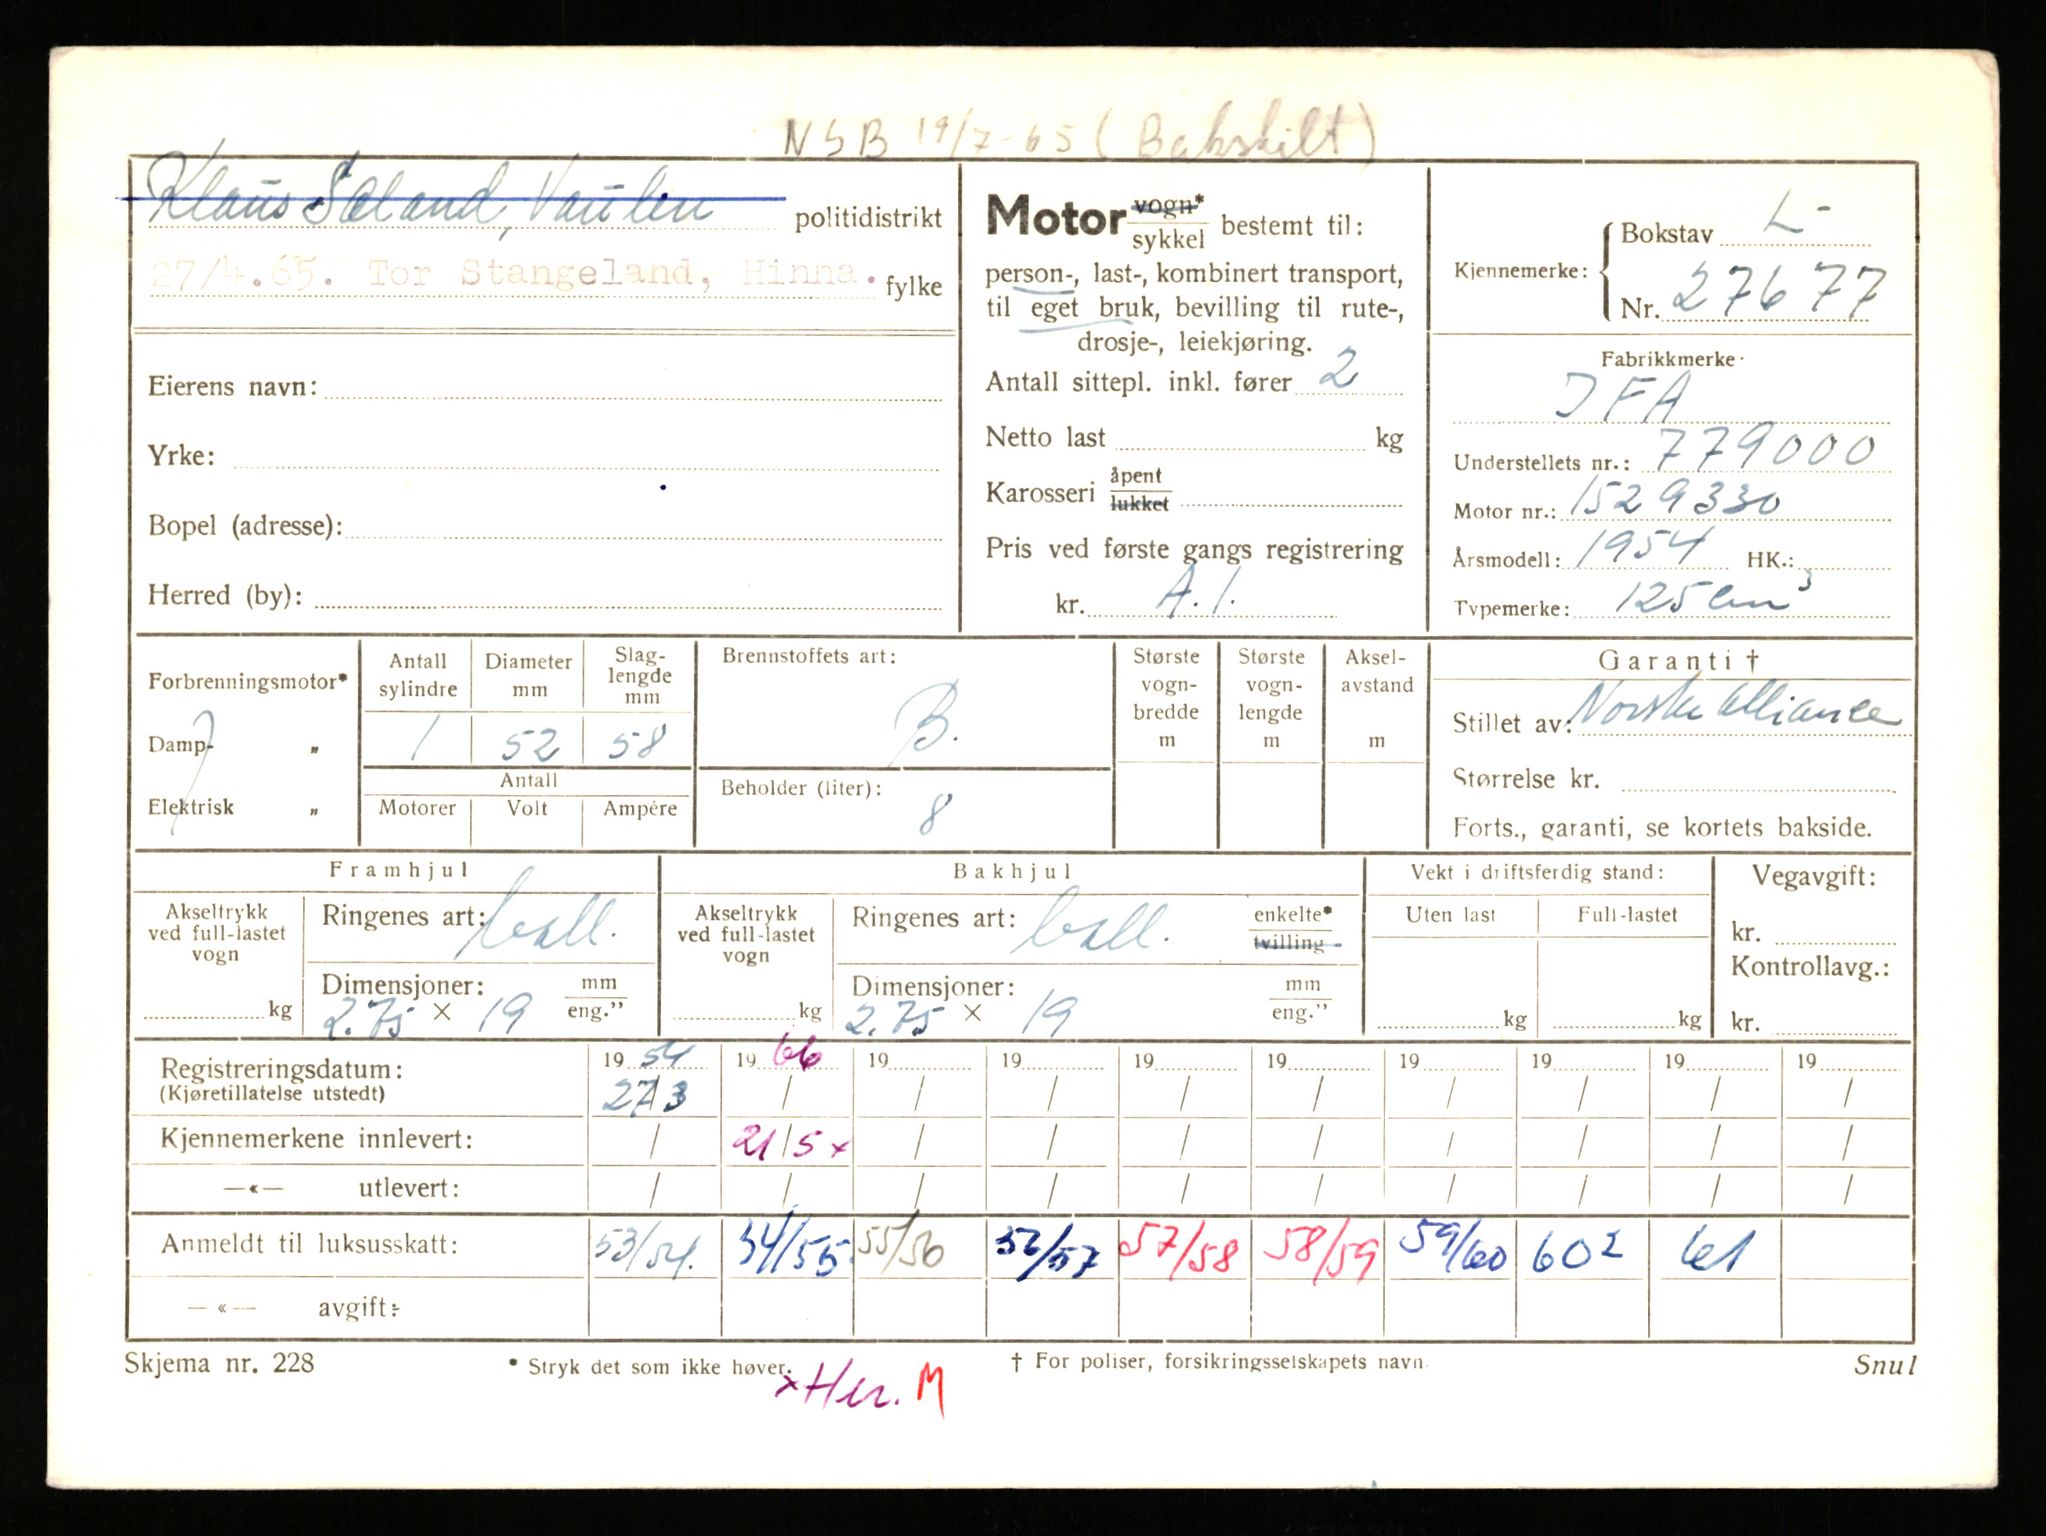 NSB 19/7-65 (Bakskilt)
Klaus Sæland, Vaulen politidistrikt
27/4.65. Tor Stangeland, Hinna. fylke
Eierens navn:
Yrke:
Bopel (adresse):
Herred (by):
Motor vogn* / sykkel bestemt til:
person-, last-, kombinert transport,
til eget bruk, bevilling til rute-,
drosje-, leiekjøring.
Antall sittepl. inkl. fører 2
Netto last kg
Karosseri åpent / lukket
Pris ved første gangs registrering
kr. A.1.
Kjennemerke: Bokstav L-
Nr. 27677
Fabrikkmerke
IFA
Understellets nr.: 779000
Motor nr.: 1529330
Årsmodell: 1954 HK.:
Typemerke: 125 cm³
Forbrenningsmotor*
Damp- „
Elektrisk „
Antall sylindre 1
Diameter mm 52
Slaglengde mm 58
Antall
Motorer Volt Ampére
Brennstoffets art:
B.
Beholder (liter):
8
Største vognbredde m
Største vognlengde m
Akselavstand m
Garanti †
Stillet av: Norske Alliance
Størrelse kr.
Forts., garanti, se kortets bakside.
Framhjul
Akseltrykk ved full-lastet vogn kg
Ringenes art: ball.
Dimensjoner: mm / eng."
2.75 × 19
Bakhjul
Akseltrykk ved full-lastet vogn kg
Ringenes art: ball. enkelte* / tvilling
Dimensjoner: mm / eng."
2.75 × 19
Vekt i driftsferdig stand:
Uten last Full-lastet
kg kg
Vegavgift:
kr.
Kontrollavg.:
kr.
Registreringsdatum: 1954 1966 19 19 19 19 19 19 19 19
(Kjøretillatelse utstedt) 27/3 / / / / / / / / /
Kjennemerkene innlevert: / 21/5 x / / / / / / / /
—«— utlevert: / / / / / / / / / /
Anmeldt til luksusskatt: 53/54. 54/55 55/56 56/57 57/58 58/59 59/60 60² 61
—«— avgift:
Skjema nr. 228 * Stryk det som ikke høver. † For poliser, forsikringsselskapets navn. Snul
x Her. M